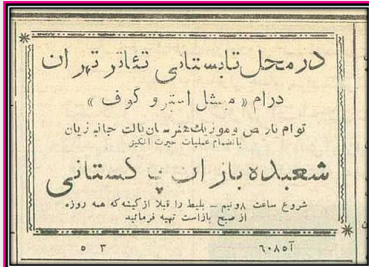 در محل تابستانی تئاتر تهران
درام « میشل استروگوف »
توام با رقص و موزیک هنرستان بالت جانبازیان
بانضمام عملیات حیرت انگیز
شعبده بازان پاکستانی
شروع ساعت ۸ونیم - بلیط را قبلا از گیشه که همه روزه
از صبح باز است تهیه فرمائید
آ ۶۰۸۵
۳ ۵